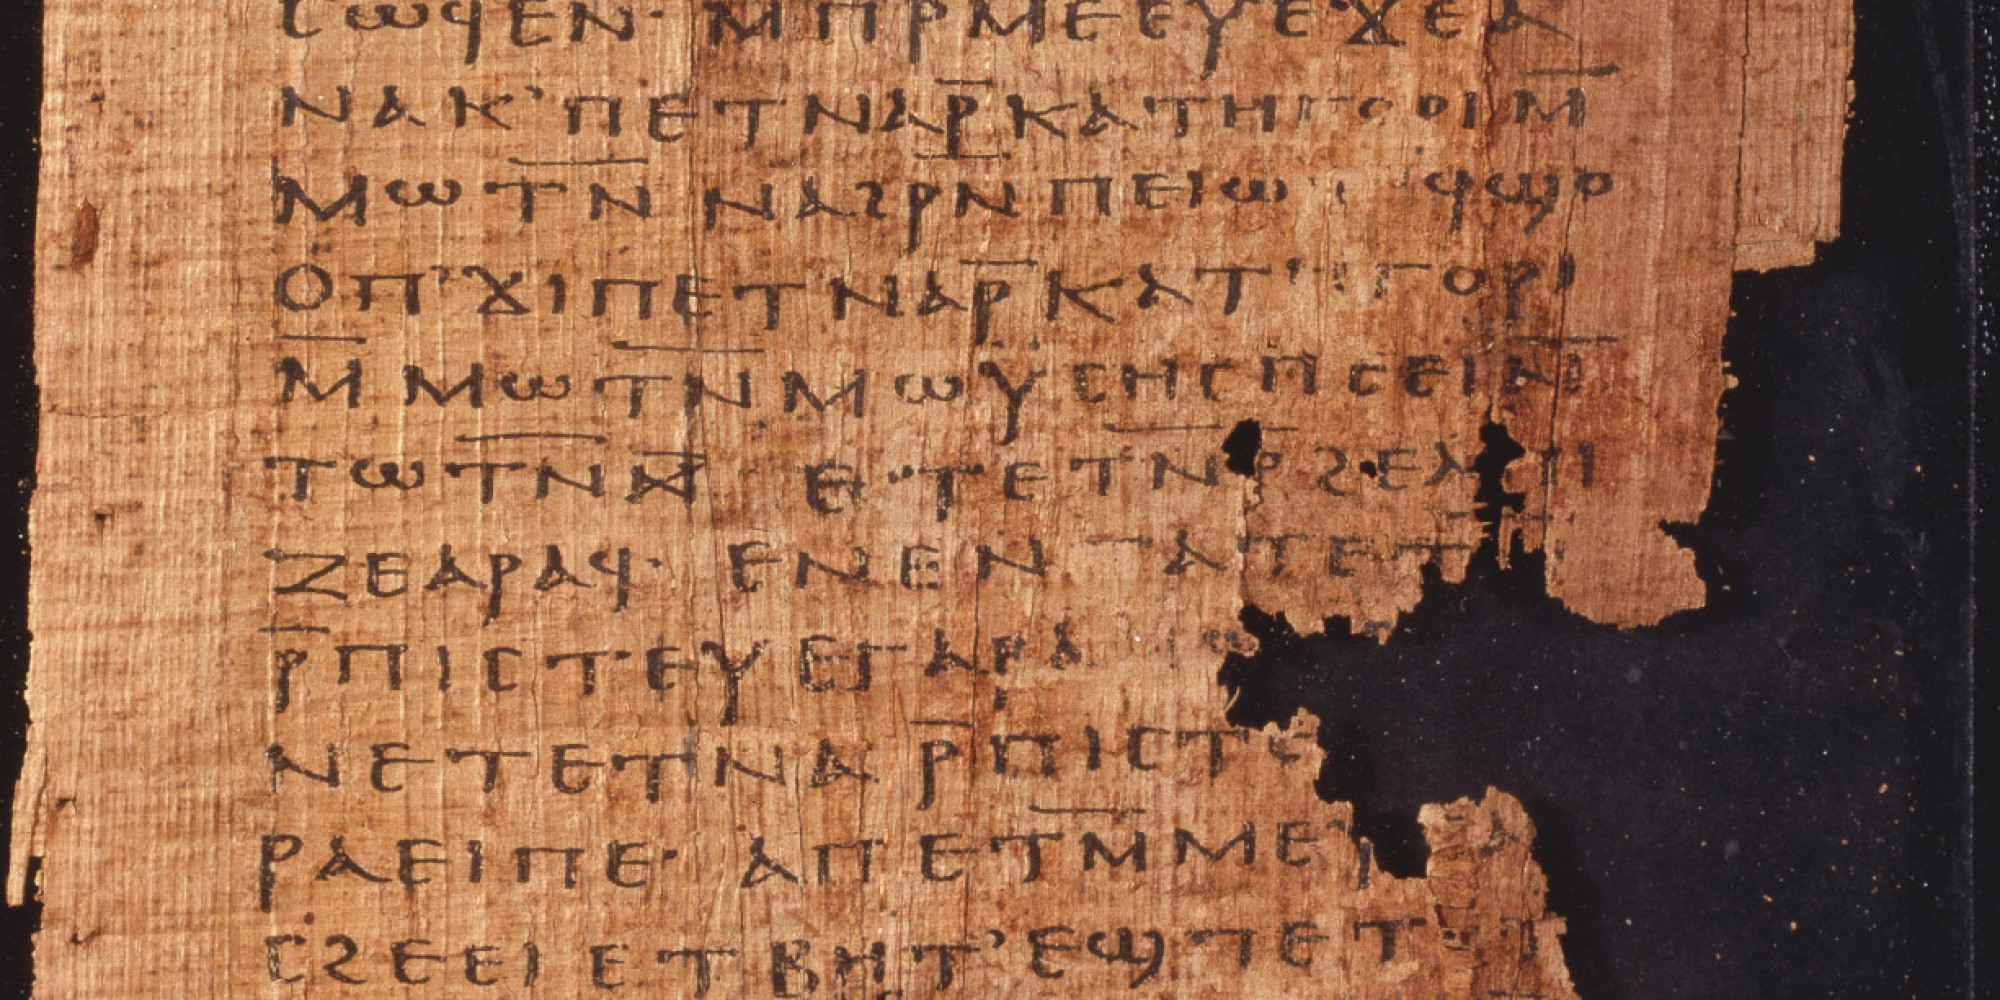 ⲥⲱϥⲉⲛ· ⲙⲡⲣⲙⲉⲉⲩⲉϫⲉⲁ
ⲛⲁⲕ' ⲡⲉⲧⲛⲁⲣ̅ⲕⲁⲧⲏⲅⲟⲣⲓⲙ̅
ⲙⲱⲧ̅ⲛ̅ ⲛⲁϩⲣⲛ̅ⲡⲉⲓⲱⲧ ϥϣⲟ
ⲟⲡ'ϫⲓⲡⲉⲧⲛⲁⲣ̅ⲕⲁⲧⲏⲅⲟⲣⲓ
ⲙ̅ⲙⲱⲧ̅ⲛ̅ⲙⲱⲩⲥⲏⲥⲡⲉⲉⲓⲛ̅
ⲧⲱⲧ̅ⲛ̅ϫ̅ ⲉⲧⲉⲧ̅ⲛ̅ⲣ̅ϩⲉⲗⲡⲓ
ⲍⲉⲁⲣⲁϥ· ⲉⲛⲉⲛⲧⲁⲧⲉⲧ
ⲣ̅ⲡⲓⲥⲧⲉⲩⲉⲅⲁⲣⲁ
ⲛⲉⲧⲉⲧⲛⲁⲣ̅ⲡⲓⲥⲧⲉ
ⲣⲁⲉⲓⲡⲉ· ⲁⲡⲉⲧⲙ̅ⲙⲉⲩ
ⲥϩⲉⲉⲓ ⲉⲧⲃⲏⲧ' ⲉϣⲡⲉⲧ